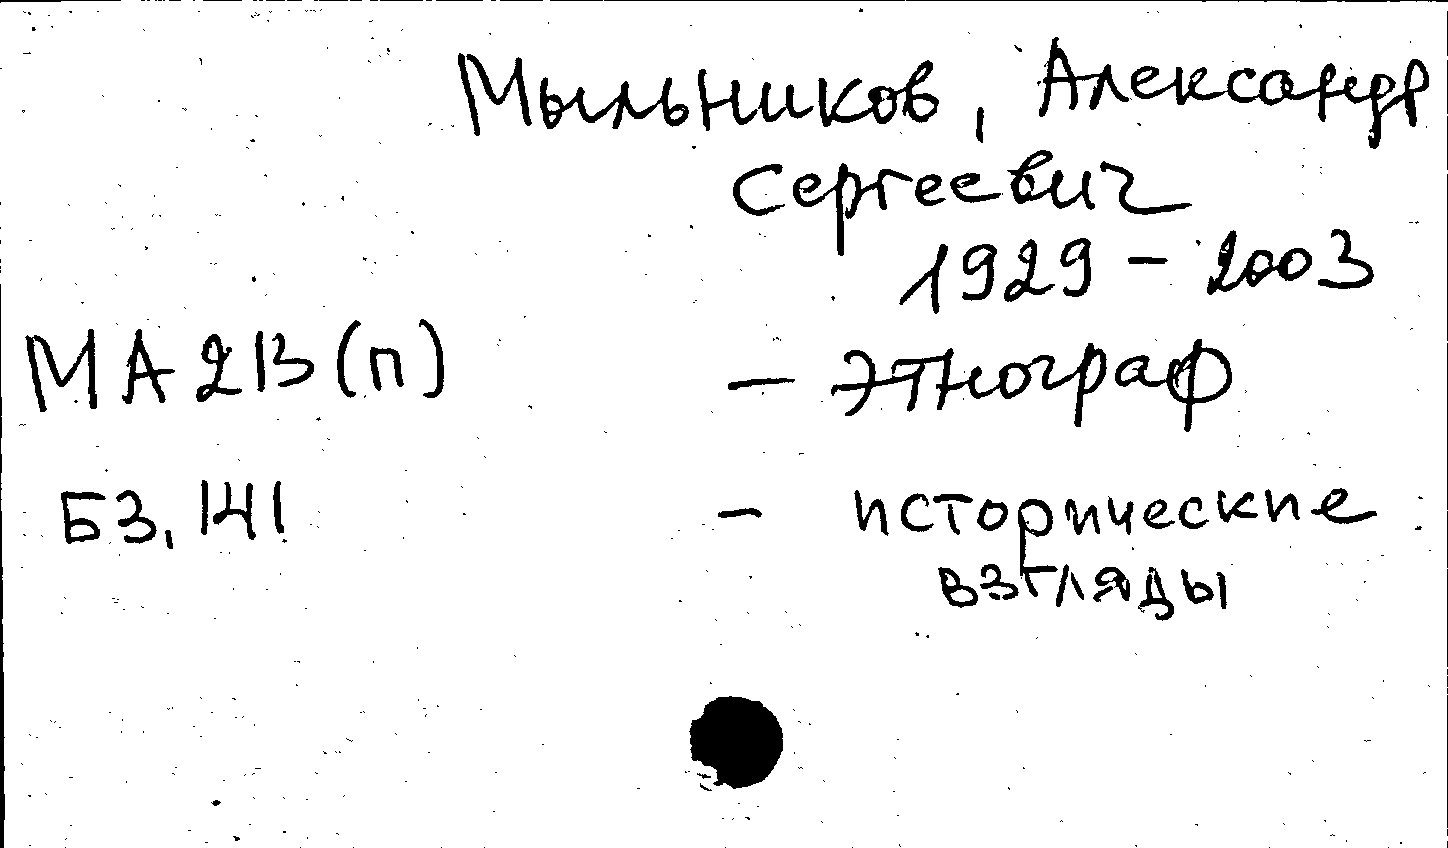 Мыльников, Александр
Сергеевич
1929 – 2003
МА213(п) – этнограф
Б3,141 – исторические
взгляды